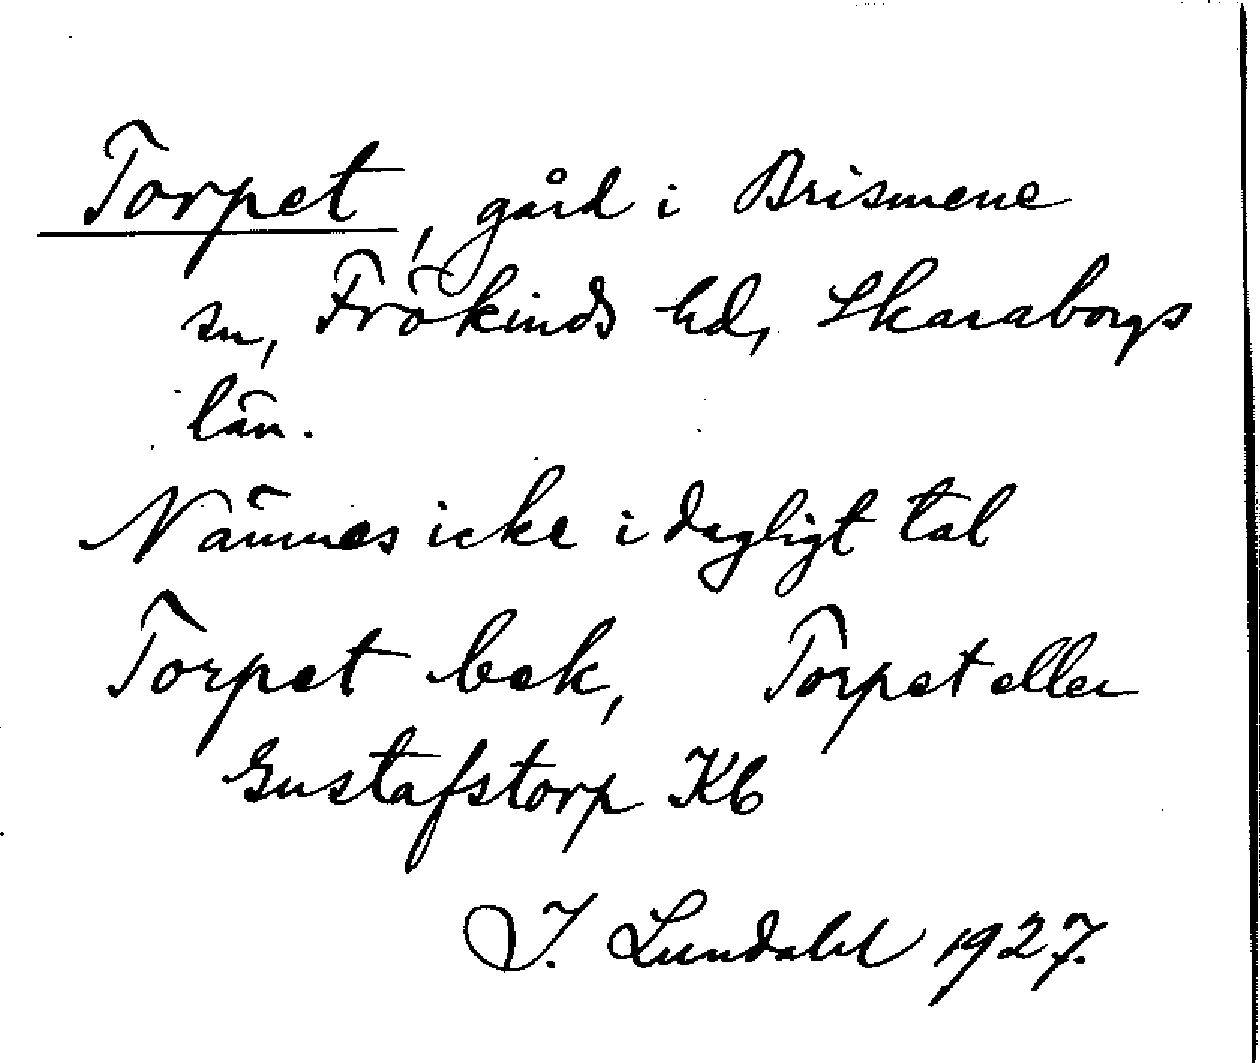 Torpet, gård i Brismene
sn, Frökinds hd, Skaraborgs
län.
Nämnes icke i dagligt tal
Torpet bek, Torpet eller
Gustafstorp Kb
I. Lundahl 1927.